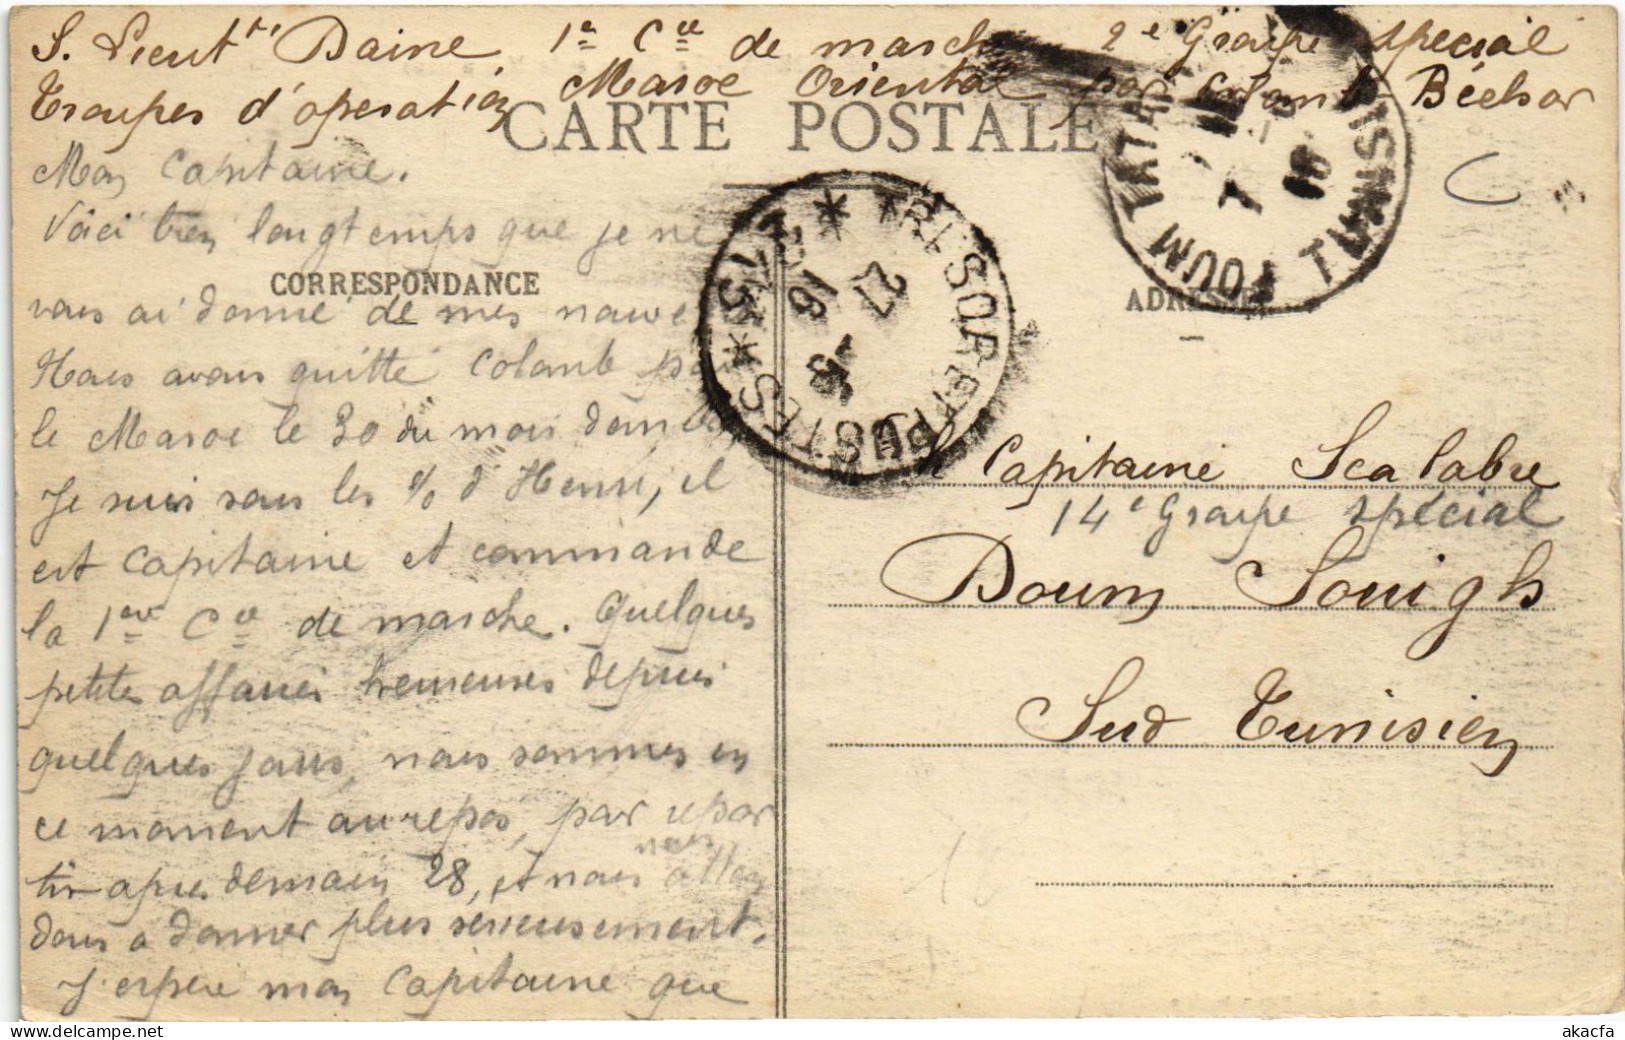 S. Lieut^t Daine, 1^e C^ie de marche 2^e Groupe spécial
Troupes d'opération Maroc Oriental par Colomb Béchar
CARTE POSTALE
Mon Capitaine.
Voici bien longtemps que je ne
CORRESPONDANCE
vous ai donné de mes nouve
Nous avons quitté Colomb pour
le Maroc le 30 du mois dernier,
Je suis sous les % d'Henri, il
est Capitaine et commande
la 1^ere C^ie de marche. Quelques
petites affaires heureuses depuis
quelques jours, nous sommes en
ce moment au repos, pour repar
tir après demain 28, et nous nous atten
dons à donner plus sérieusement.
J'espère mon Capitaine que
TRESOR ET POSTES
27
16
* 15 *
TATAHOUINE
TUNISIE
FOUM TATAHOUINE
ADRESSE
Le Capitaine Scalabre
14^e Groupe spécial
Doum Souigh
Sud Tunisien
akacfa